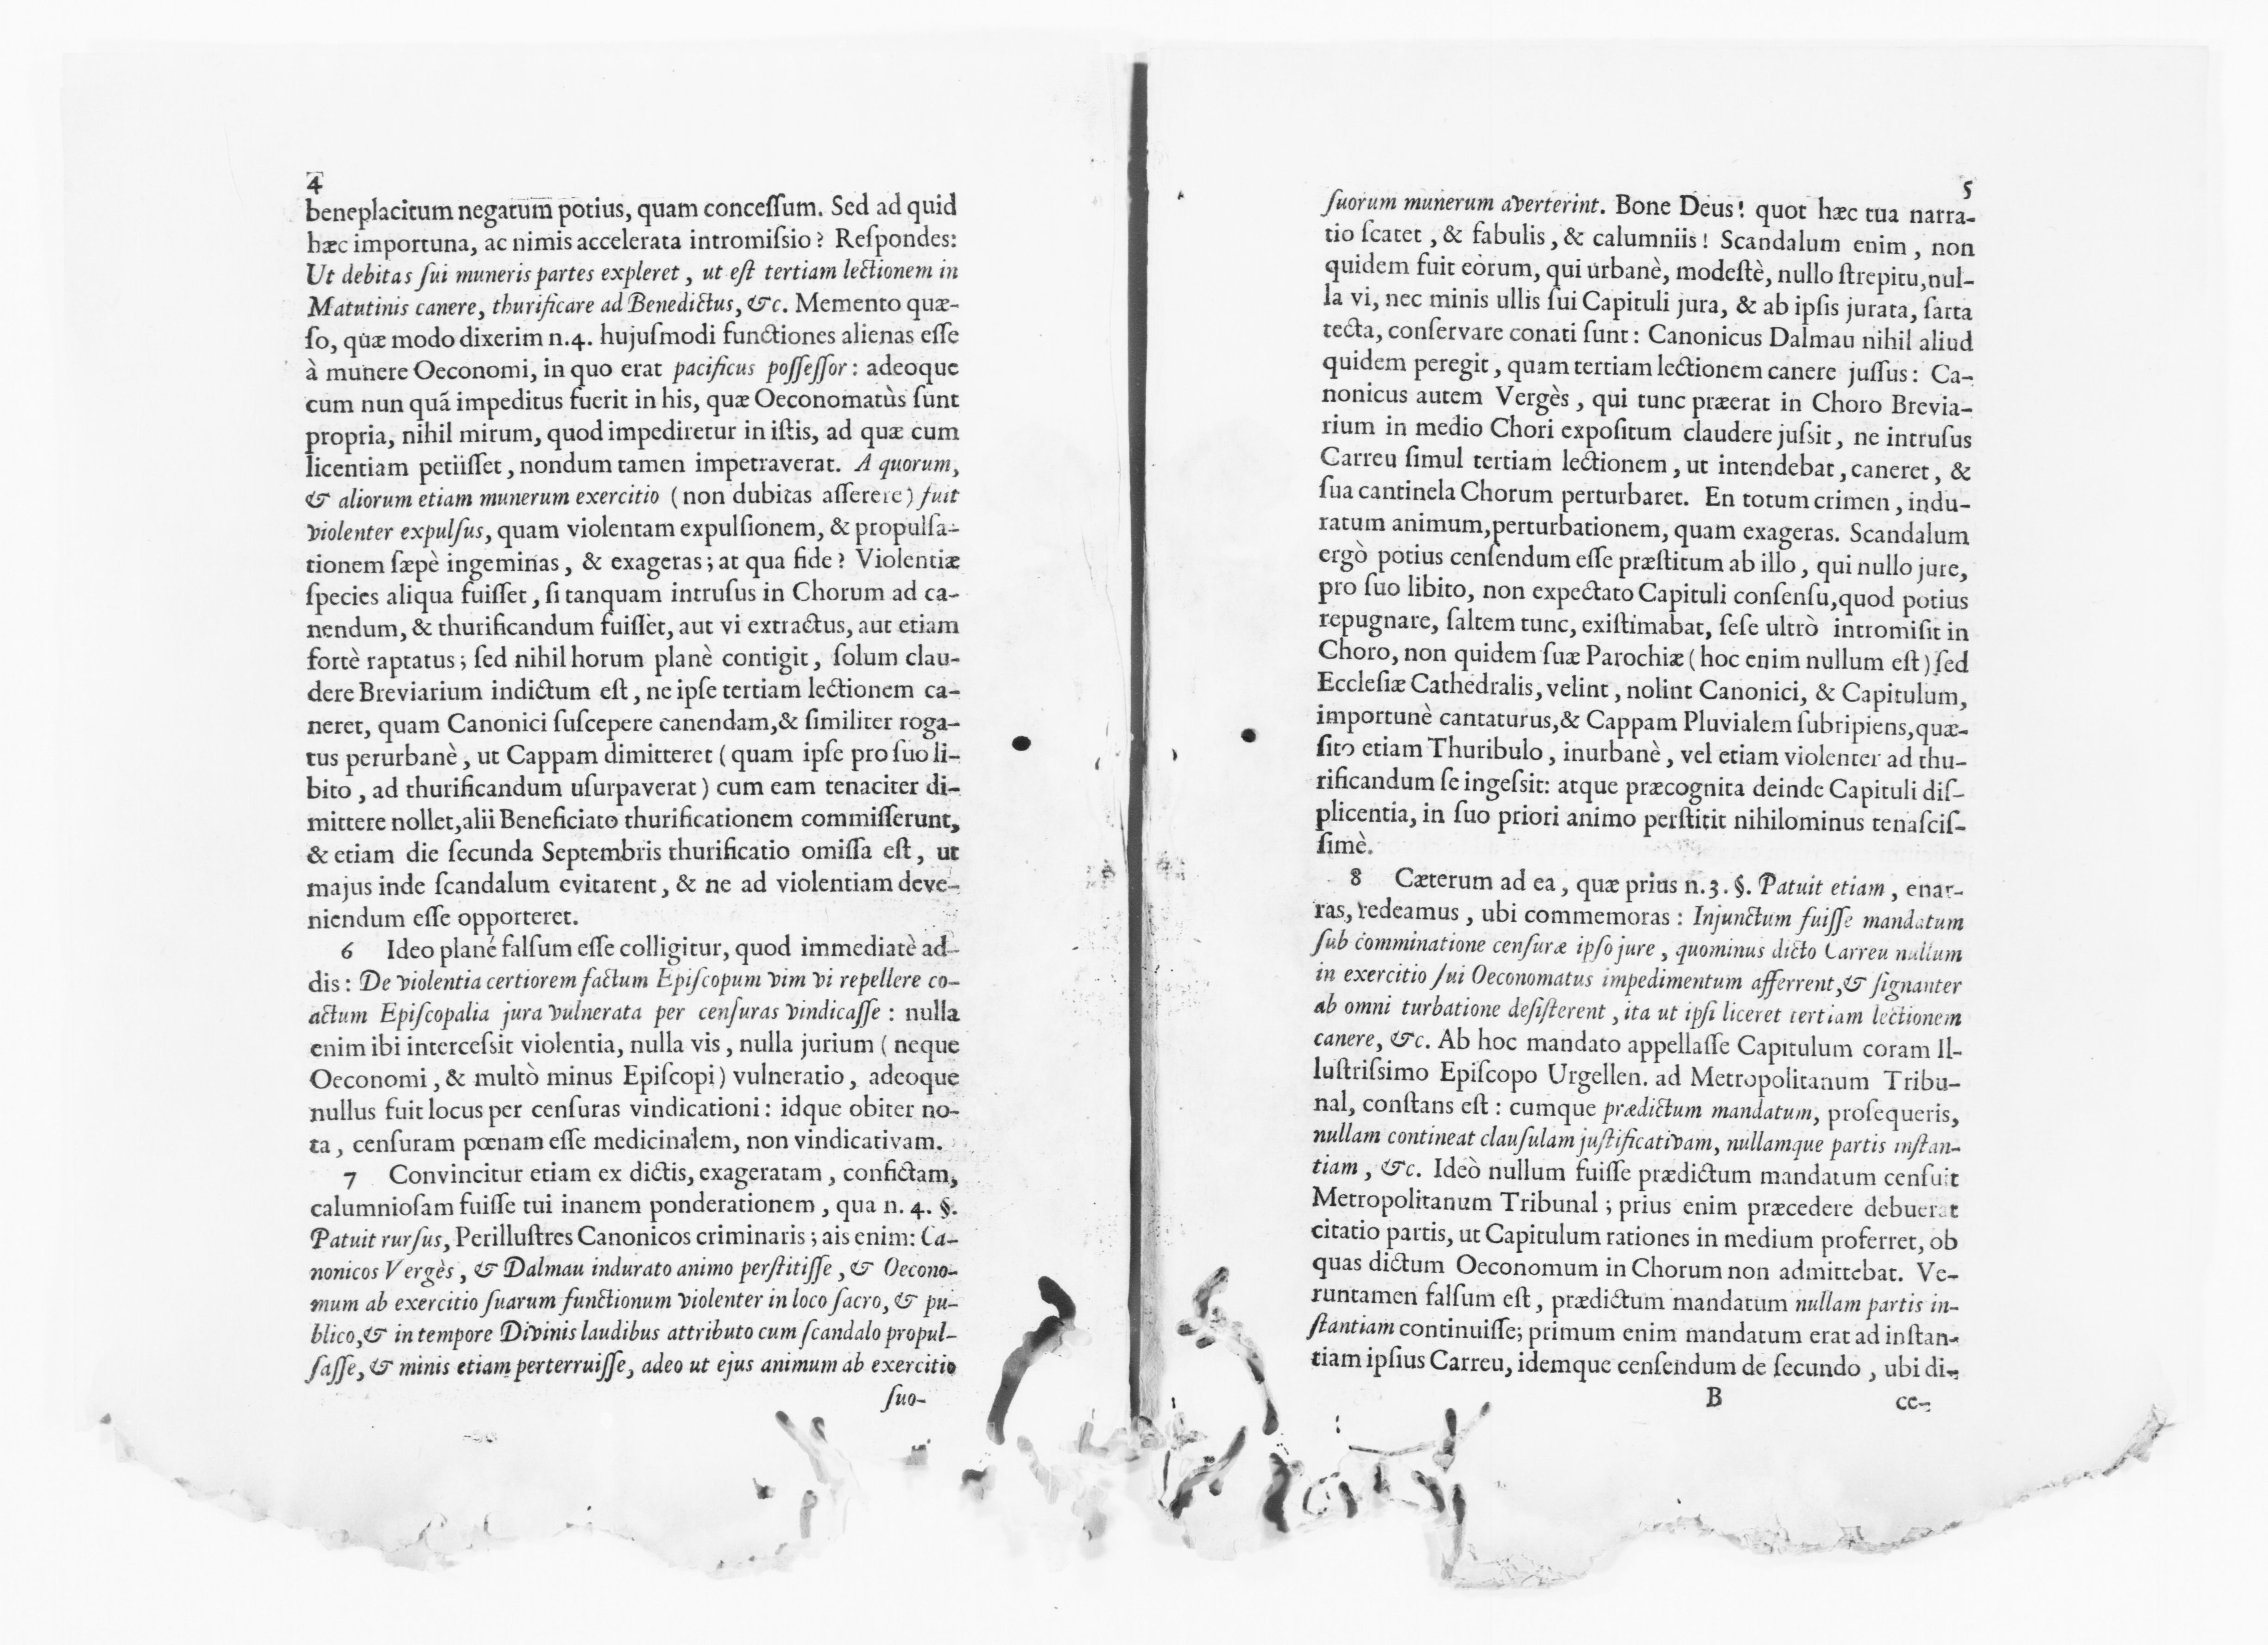 4
beneplacitum negatum potius, quam conceſſum. Sed ad quid
hæc importuna, ac nimis accelerata intromiſsio? Reſpondes:
Ut debitas ſui muneris partes expleret, ut eſt tertiam lectionem in
Matutinis canere, thurificare ad Benedictus, &c. Memento quæ-
ſo, quæ modo dixerim n.4. hujuſmodi functiones alienas eſſe
à munere Oeconomi, in quo erat pacificus poſſeſſor: adeoque
cum nun quã impeditus fuerit in his, quæ Oeconomatùs ſunt
propria, nihil mirum, quod impediretur in iſtis, ad quæ cum
licentiam petiiſſet, nondum tamen impetraverat. A quorum,
& aliorum etiam munerum exercitio (non dubitas aſſerere) fuit
violenter expulſus, quam violentam expulſionem, & propulſa-
tionem ſæpè ingeminas, & exageras; at qua fide? Violentiæ
ſpecies aliqua fuiſſet, ſi tanquam intruſus in Chorum ad ca-
nendum, & thurificandum fuiſſet, aut vi extractus, aut etiam
fortè raptatus; ſed nihil horum planè contigit, ſolum clau-
dere Breviarium indictum eſt, ne ipſe tertiam lectionem ca-
neret, quam Canonici ſuſcepere canendam,& ſimiliter roga-
tus perurbanè, ut Cappam dimitteret (quam ipſe pro ſuo li-
bito, ad thurificandum uſurpaverat) cum eam tenaciter di-
mittere nollet,alii Beneficiato thurificationem commiſſerunt,
& etiam die ſecunda Septembris thurificatio omiſſa eſt, ut
majus inde ſcandalum evitarent, & ne ad violentiam deve-
niendum eſſe opporteret.
6 Ideo plané falſum eſſe colligitur, quod immediatè ad-
dis: De violentia certiorem factum Epiſcopum vim vi repellere co-
actum Epiſcopalia jura vulnerata per cenſuras vindicaſſe: nulla
enim ibi interceſsit violentia, nulla vis, nulla jurium (neque
Oeconomi, & multò minus Epiſcopi) vulneratio, adeoque
nullus fuit locus per cenſuras vindicationi: idque obiter no-
ta, cenſuram pœnam eſſe medicinalem, non vindicativam.
7 Convincitur etiam ex dictis, exageratam, confictam,
calumnioſam fuiſſe tui inanem ponderationem, qua n. 4. §.
Patuit rurſus, Perilluſtres Canonicos criminaris; ais enim: Ca-
nonicos Vergès, & Dalmau indurato animo perſtitiſſe, & Oecono-
mum ab exercitio ſuarum functionum violenter in loco ſacro, & pu-
blico,& in tempore Divinis laudibus attributo cum ſcandalo propul-
ſaſſe, & minis etiam perterruiſſe, adeo ut ejus animum ab exercitio
ſuo-
5
ſuorum munerum averterint. Bone Deus! quot hæc tua narra-
tio ſcatet, & fabulis, & calumniis! Scandalum enim, non
quidem fuit eorum, qui urbanè, modeſtè, nullo ſtrepitu,nul-
la vi, nec minis ullis ſui Capituli jura, & ab ipſis jurata, ſarta
tecta, conſervare conati ſunt: Canonicus Dalmau nihil aliud
quidem peregit, quam tertiam lectionem canere juſſus: Ca-
nonicus autem Vergès, qui tunc præerat in Choro Brevia-
rium in medio Chori expoſitum claudere juſsit, ne intruſus
Carreu ſimul tertiam lectionem, ut intendebat, caneret, &
ſua cantinela Chorum perturbaret. En totum crimen, indu-
ratum animum,perturbationem, quam exageras. Scandalum
ergò potius cenſendum eſſe præſtitum ab illo, qui nullo jure,
pro ſuo libito, non expectato Capituli conſenſu,quod potius
repugnare, ſaltem tunc, exiſtimabat, ſeſe ultrò intromiſit in
Choro, non quidem ſuæ Parochiæ (hoc enim nullum eſt) ſed
Eccleſiæ Cathedralis, velint, nolint Canonici, & Capitulum,
importunè cantaturus,& Cappam Pluvialem ſubripiens,quæ-
ſito etiam Thuribulo, inurbanè, vel etiam violenter ad thu-
rificandum ſe ingeſsit: atque præcognita deinde Capituli diſ-
plicentia, in ſuo priori animo perſtitit nihilominus tenaſciſ-
ſimè.
8 Cæterum ad ea, quæ prius n.3. §. Patuit etiam, enar-
ras, redeamus, ubi commemoras: Injunctum fuiſſe mandatum
ſub comminatione cenſuræ ipſo jure, quominus dicto Carreu nullum
in exercitio ſui Oeconomatus impedimentum afferrent,& ſignanter
ab omni turbatione deſiſterent, ita ut ipſi liceret tertiam lectionem
canere, &c. Ab hoc mandato appellaſſe Capitulum coram Il-
luſtriſsimo Epiſcopo Urgellen. ad Metropolitanum Tribu-
nal, conſtans eſt: cumque prædictum mandatum, proſequeris,
nullam contineat clauſulam juſtificativam, nullamque partis inſtan-
tiam, &c. Ideò nullum fuiſſe prædictum mandatum cenſuit
Metropolitanum Tribunal; prius enim præcedere debuerat
citatio partis, ut Capitulum rationes in medium proferret, ob
quas dictum Oeconomum in Chorum non admittebat. Ve-
runtamen falſum eſt, prædictum mandatum nullam partis in-
ſtantiam continuiſſe; primum enim mandatum erat ad inſtan-
tiam ipſius Carreu, idemque cenſendum de ſecundo, ubi di-
B ce-